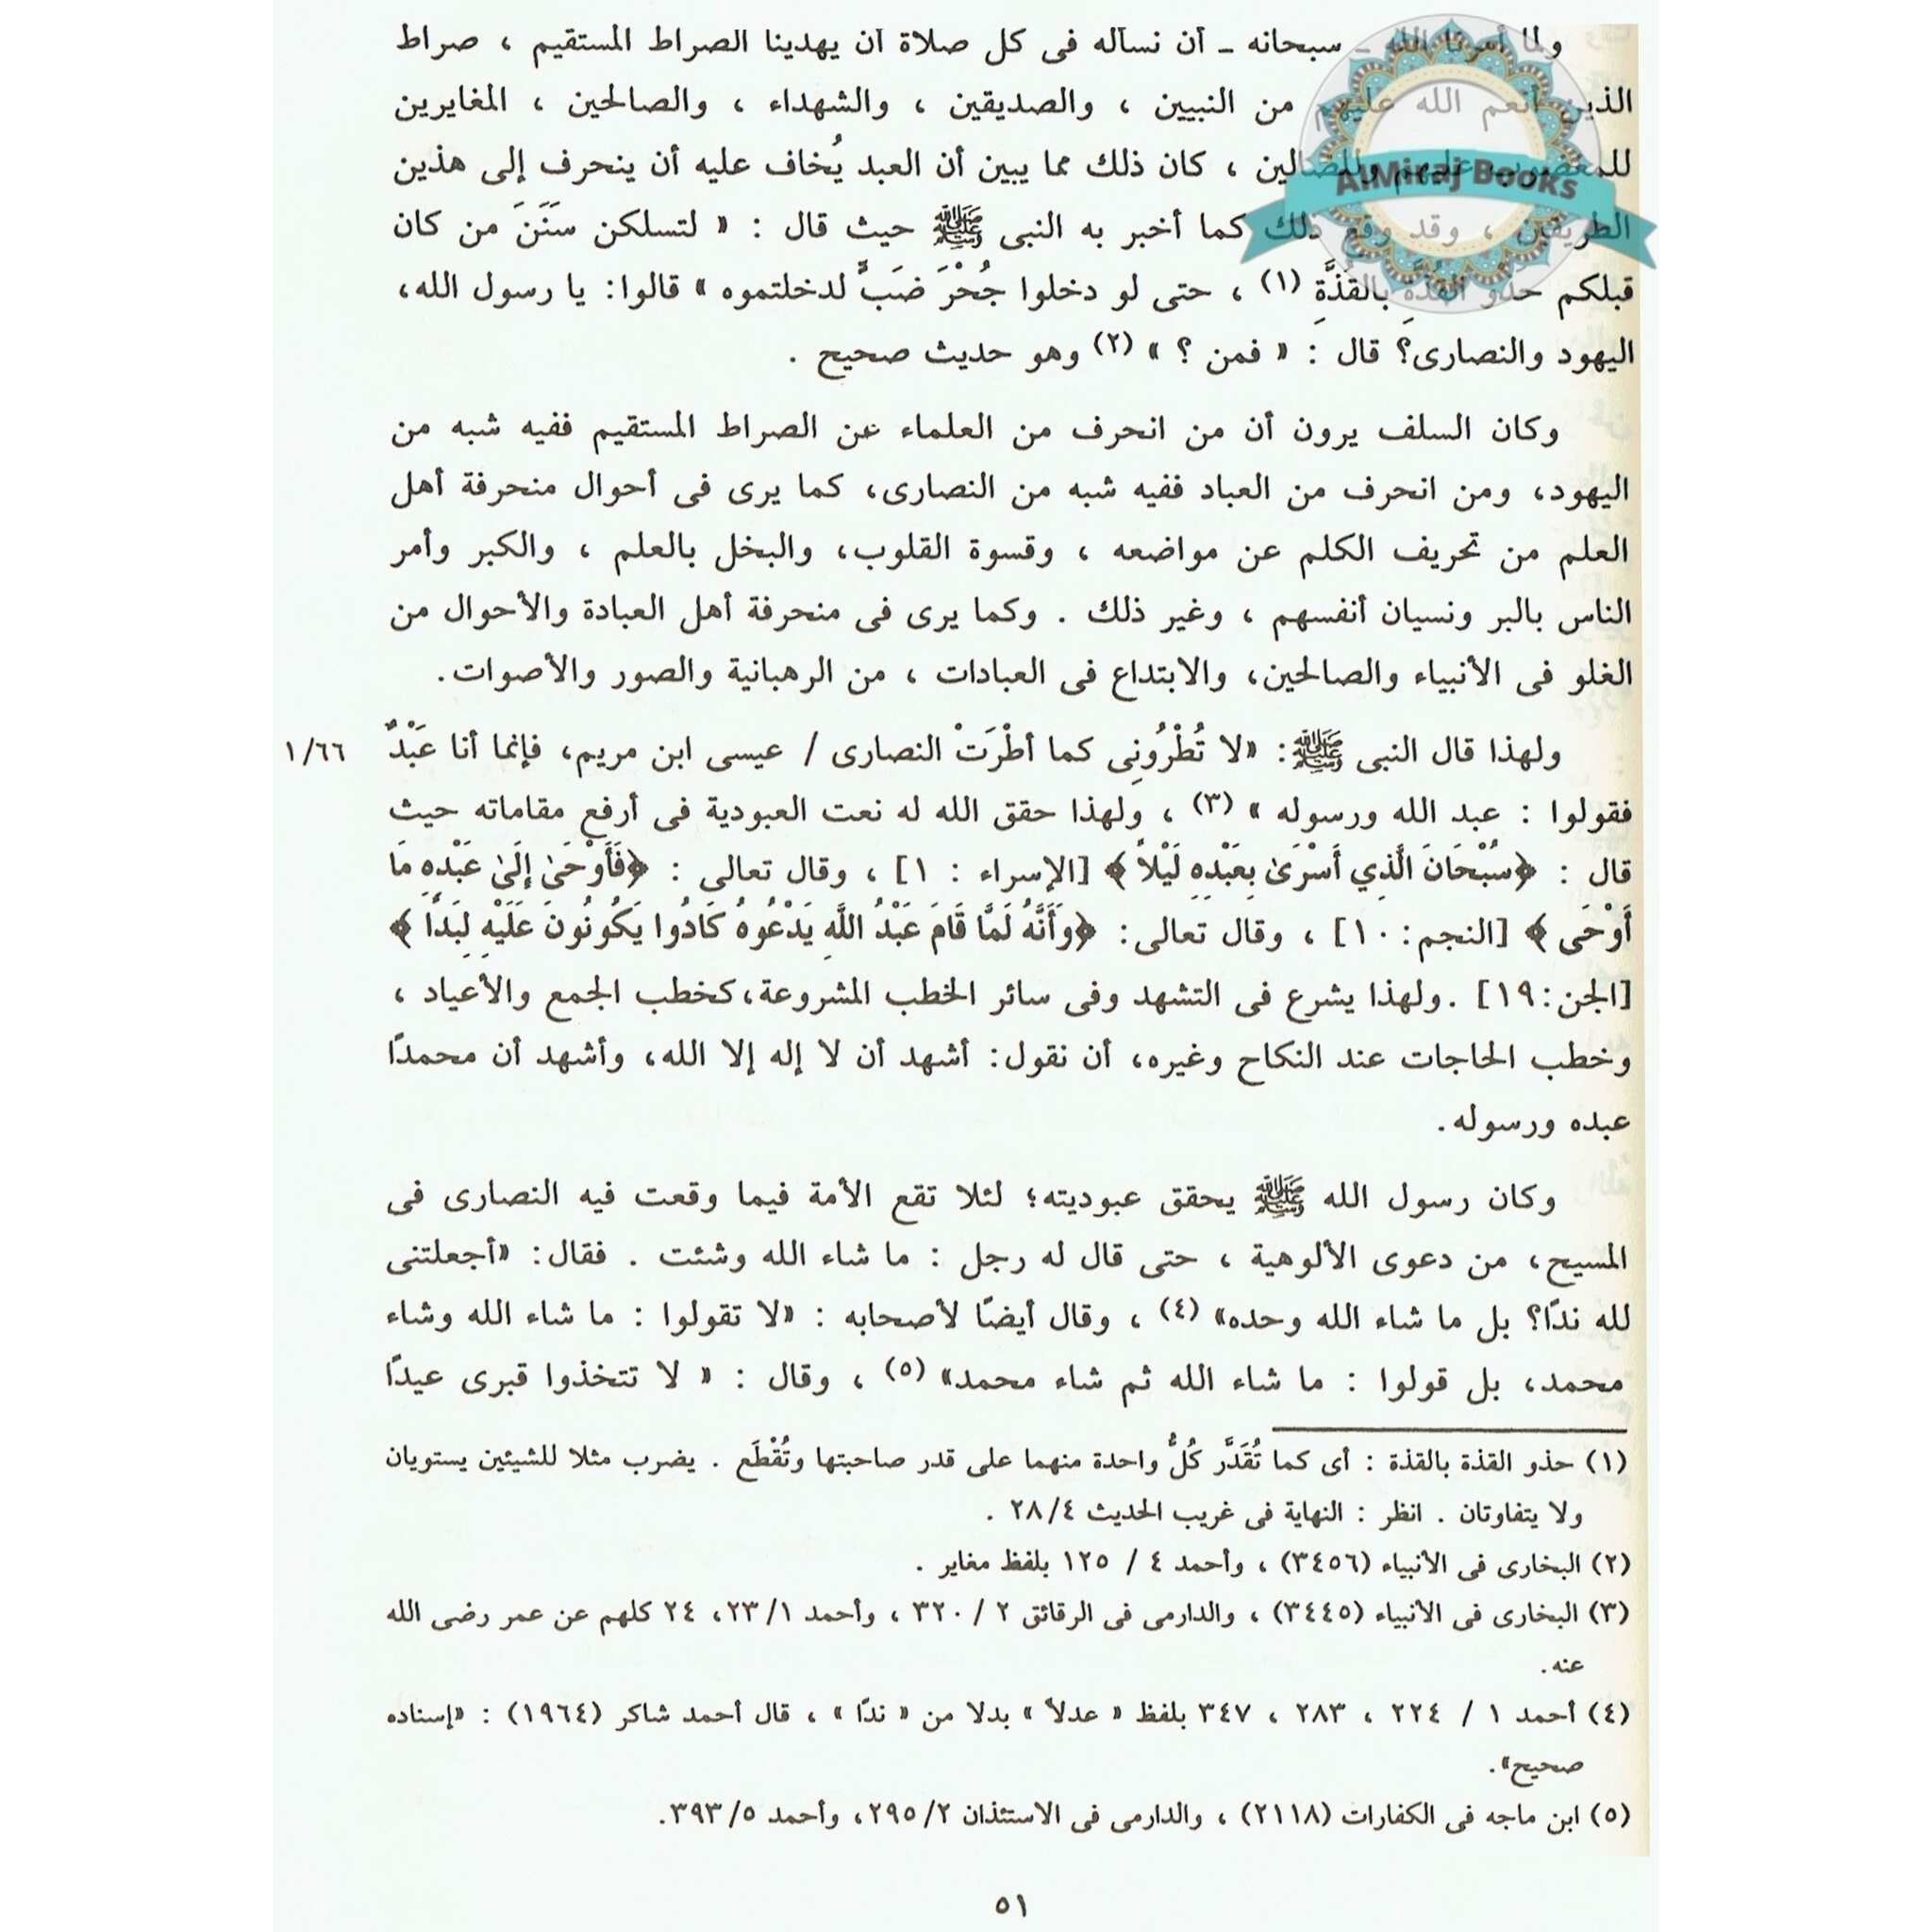 ولما أمرنا الله ـ سبحانه ـ أن نسأله فى كل صلاة أن يهدينا الصراط المستقيم ، صراط
الذين أنعم الله عليهم من النبيين ، والصديقين ، والشهداء ، والصالحين ، المغايرين
للمغضوب عليهم وللضالين ، كان ذلك مما يبين أن العبد يُخاف عليه أن ينحرف إلى هذين
الطريقين ، وقد وقع ذلك كما أخبر به النبى ﷺ حيث قال : « لتسلكن سَنَنَ من كان
قبلكم حذو القُذَّةِ بالقُذَّةِ (١) ، حتى لو دخلوا جُحْرَ ضَبٍّ لدخلتموه » قالوا: يا رسول الله،
اليهود والنصارى؟ قال : « فمن ؟ » (٢) وهو حديث صحيح .
وكان السلف يرون أن من انحرف من العلماء عن الصراط المستقيم ففيه شبه من
اليهود، ومن انحرف من العباد ففيه شبه من النصارى، كما يرى فى أحوال منحرفة أهل
العلم من تحريف الكلم عن مواضعه ، وقسوة القلوب، والبخل بالعلم ، والكبر وأمر
الناس بالبر ونسيان أنفسهم ، وغير ذلك . وكما يرى فى منحرفة أهل العبادة والأحوال من
الغلو فى الأنبياء والصالحين، والابتداع فى العبادات ، من الرهبانية والصور والأصوات.
ولهذا قال النبى ﷺ: «لا تُطْرُونِى كما أطْرَتْ النصارى / عيسى ابن مريم، فإنما أنا عَبْدٌ ١/٦٦
فقولوا : عبد الله ورسوله » (٣) ، ولهذا حقق الله له نعت العبودية فى أرفع مقاماته حيث
قال : ﴿سُبْحَانَ الَّذِي أَسْرَىٰ بِعَبْدِهِ لَيْلاً ﴾ [الإسراء : ١] ، وقال تعالى : ﴿فَأَوْحَىٰ إِلَىٰ عَبْدِهِ مَا
أَوْحَى ﴾ [النجم: ١٠] ، وقال تعالى: ﴿وَأَنَّهُ لَمَّا قَامَ عَبْدُ اللَّهِ يَدْعُوهُ كَادُوا يَكُونُونَ عَلَيْهِ لِبَدًا ﴾
[الجن: ١٩] .ولهذا يشرع فى التشهد وفى سائر الخطب المشروعة،كخطب الجمع والأعياد ،
وخطب الحاجات عند النكاح وغيره، أن نقول: أشهد أن لا إله إلا الله، وأشهد أن محمدًا
عبده ورسوله.
وكان رسول الله ﷺ يحقق عبوديته؛ لئلا تقع الأمة فيما وقعت فيه النصارى فى
المسيح، من دعوى الألوهية ، حتى قال له رجل : ما شاء الله وشئت . فقال: «أجعلتنى
لله ندًا؟ بل ما شاء الله وحده» (٤) ، وقال أيضًا لأصحابه : «لا تقولوا : ما شاء الله وشاء
محمد، بل قولوا : ما شاء الله ثم شاء محمد» (٥) ، وقال : « لا تتخذوا قبرى عيدًا
(١) حذو القذة بالقذة : أى كما تُقَدَّر كُلُّ واحدة منهما على قدر صاحبتها وتُقْطَع . يضرب مثلا للشيئين يستويان
ولا يتفاوتان . انظر : النهاية فى غريب الحديث ٢٨/٤ .
(٢) البخارى فى الأنبياء (٣٤٥٦) ، وأحمد ٤ / ١٢٥ بلفظ مغاير .
(٣) البخارى فى الأنبياء (٣٤٤٥) ، والدارمى فى الرقائق ٢ / ٣٢٠ ، وأحمد ٢٣/١، ٢٤ كلهم عن عمر رضى الله
عنه.
(٤) أحمد ١ / ٢٢٤ ، ٢٨٣ ، ٣٤٧ بلفظ « عدلاً » بدلا من « ندًا » ، قال أحمد شاكر (١٩٦٤) : «إسناده
صحيح».
(٥) ابن ماجه فى الكفارات (٢١١٨) ، والدارمى فى الاستئذان ٢٩٥/٢، وأحمد ٣٩٣/٥.
٥١
AlMiraj Books